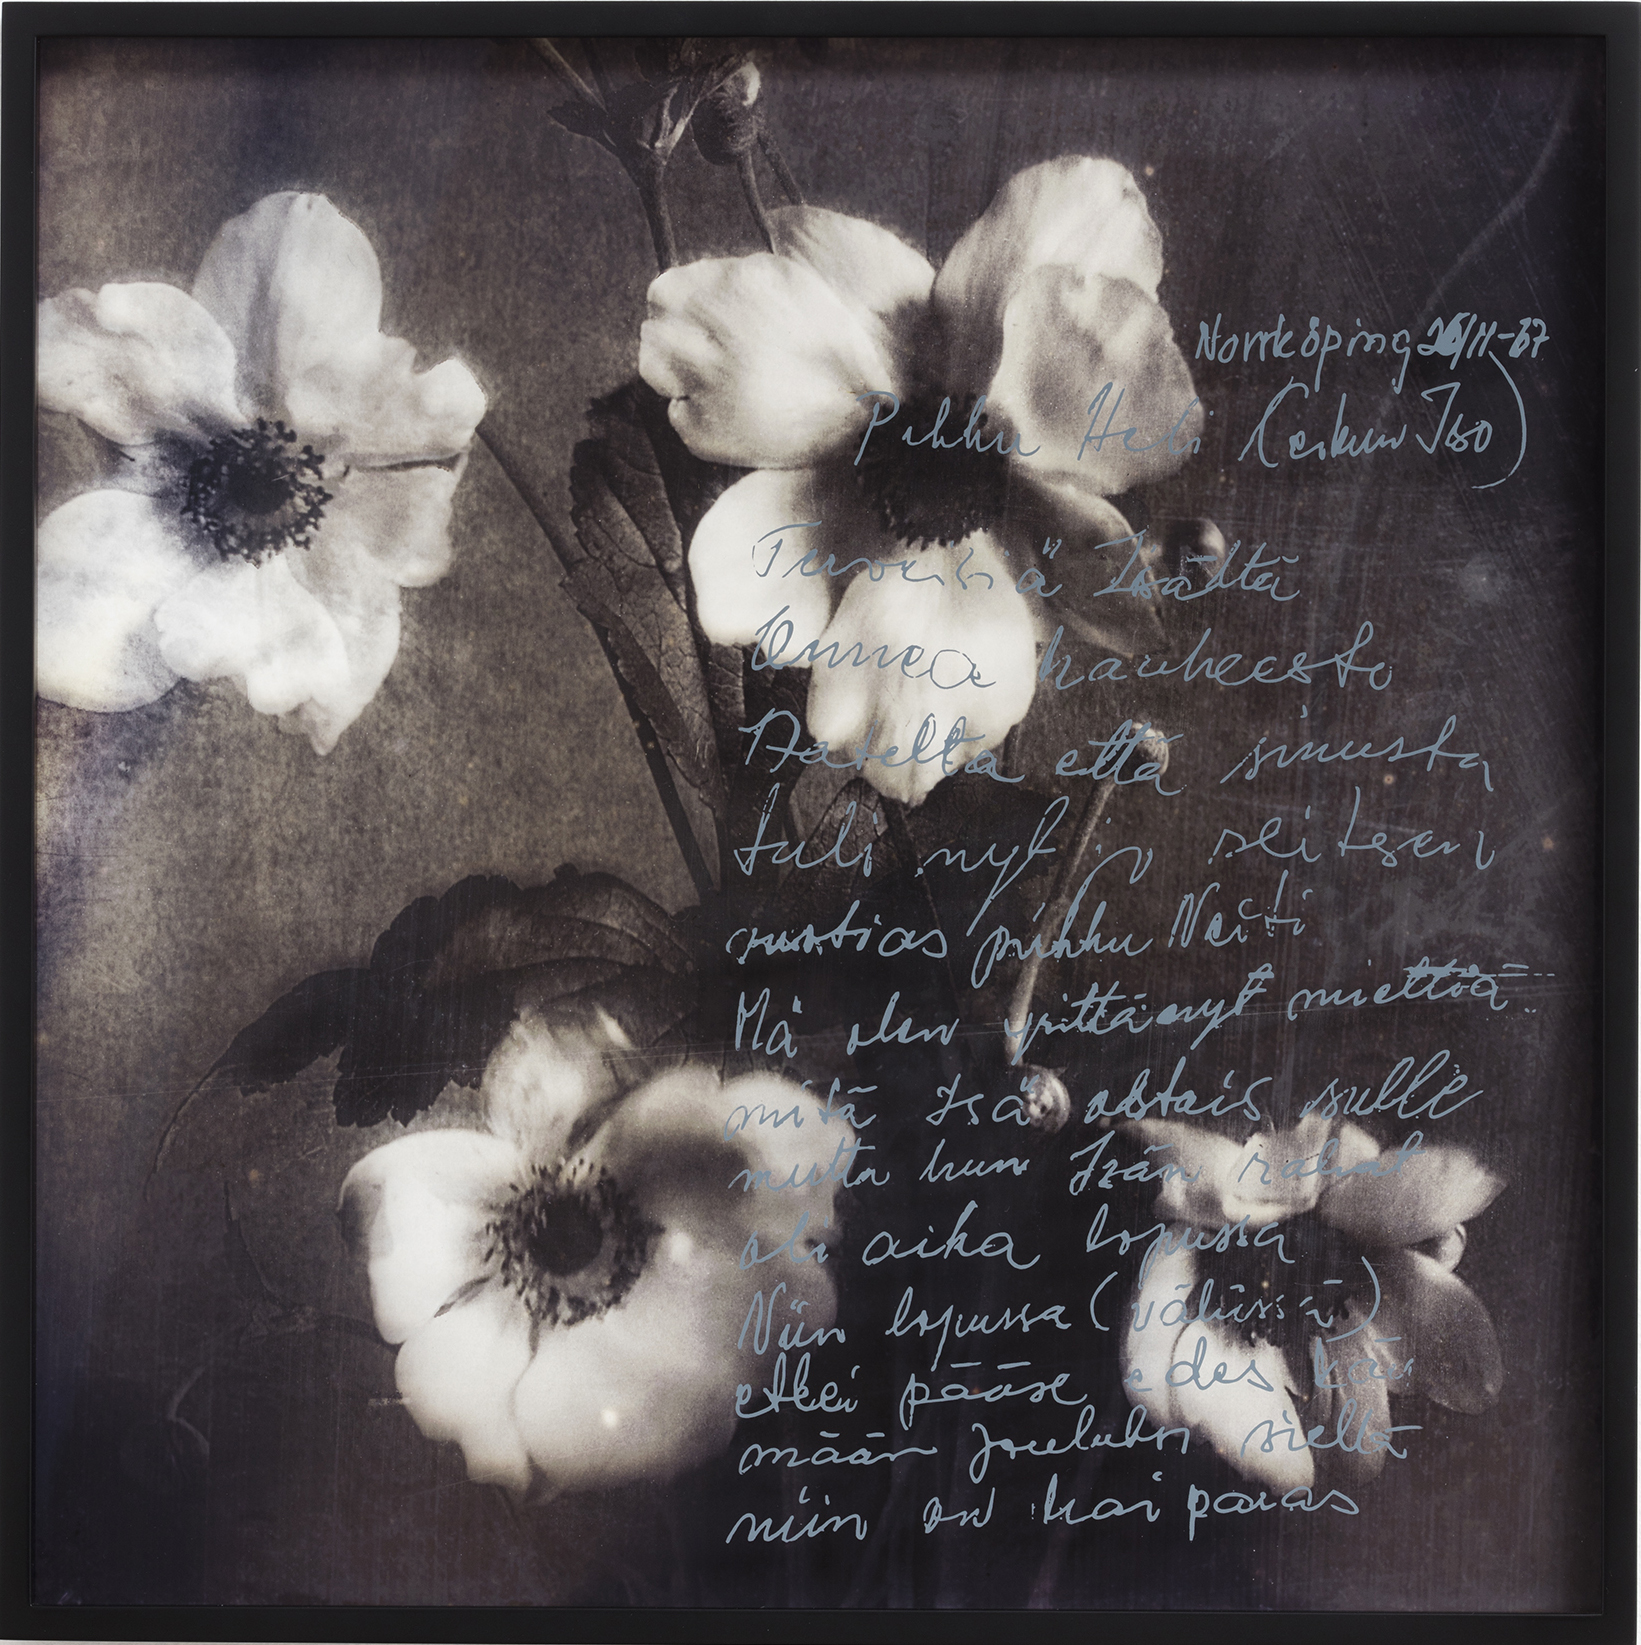 Norrköping 26/11-67
Pikku Heli (eikun Iso)
Terveisiä Isältä
Onnea kauheesti
Natelta että sinusta
tuli nyt jo seitsen
vuotias pikku Neiti
Mä olen yrittänyt miettiä
mitä Isä ostais sulle
mutta kun Isän rahat
oli aika lopussa
Niin lopussa (vähissä)
etkei pääse edes käy
mään Jouluksi sieltä
niin on kai paras